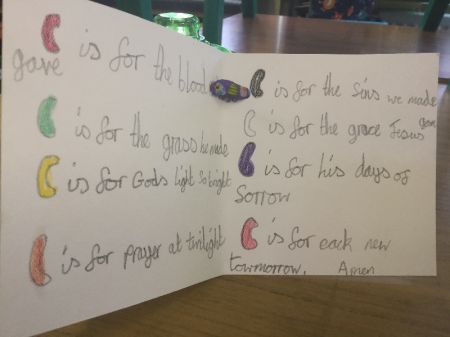 is for the blood
gave
is for the grass he made
is for Gods light so bright
is for prayer at twilight
is for the sins we made
is for the grace Jesus gave
is for his days of
sorrow
is for each new
towmorrow. Amen